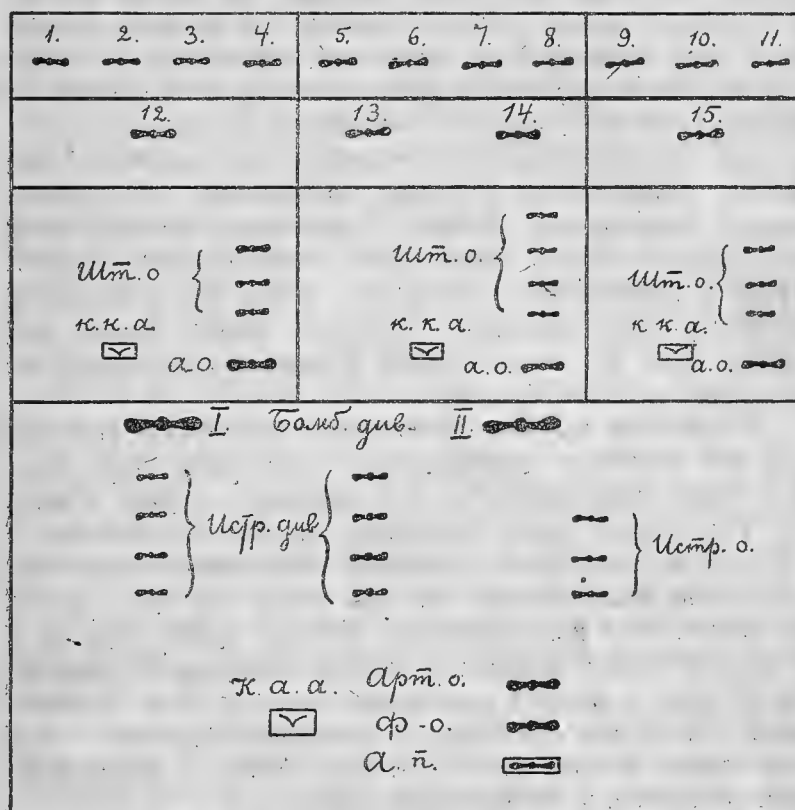 1. 2. 3. 4. 5. 6. 7. 8. 9. 10. 11.
12. 13. 14. 15.
Шт. о Шт. о. Шт. о.
к. к. а. к. к. а. к к. а.
а.о. а.о. а.о.
I. Бомб. див. II.
Истр. див Истр. о.
К. а. а. Арт. о.
Ф-о.
А. п.